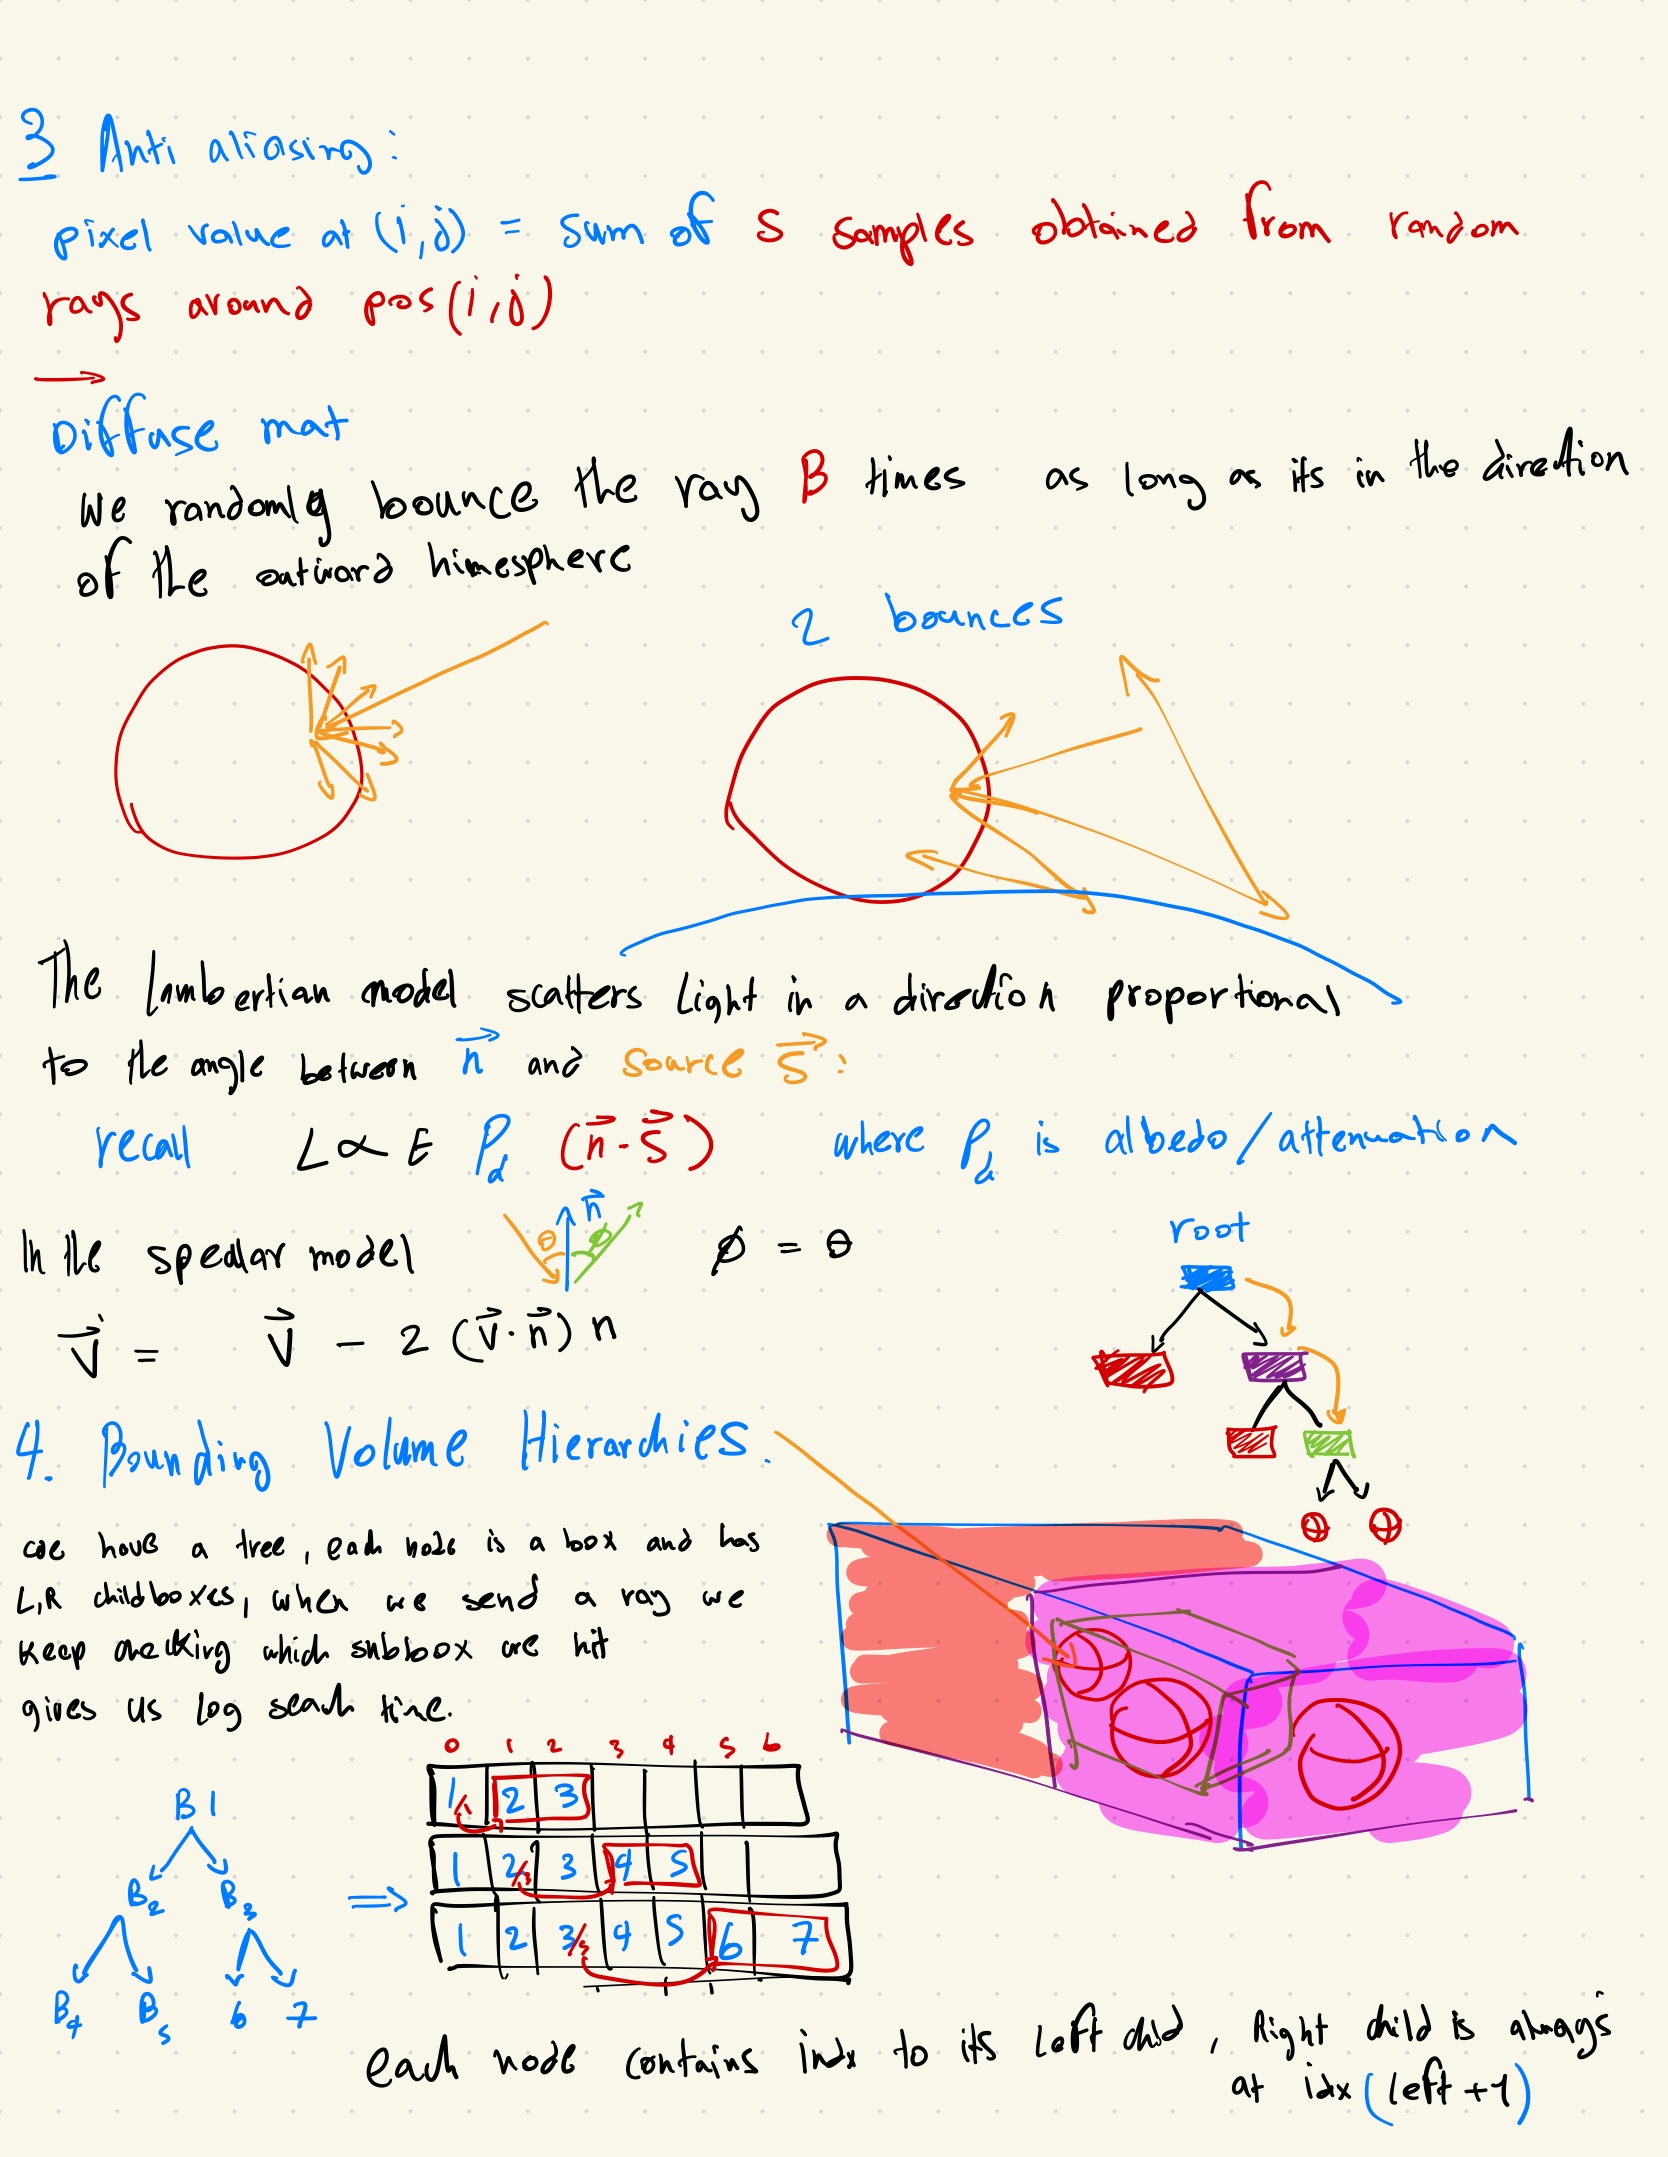 3 Anti aliasing:
pixel value at (i,j) = sum of S samples obtained from random
rays around pos(i,j)
Diffuse mat
we randomly bounce the ray B times as long as its in the direction
of the outward himesphere
2 bounces
The Lambertian model scatters Light in a direction proportional
to the angle between n⃗ and source s⃗:
recall L ∝ E P_d (n⃗ - s⃗) where P_d is albedo/attenuation
n⃗
θ ϕ
In the specular model ϕ = θ
root
v⃗' = v⃗ - 2 (v⃗·n⃗) n
4. Bounding Volume Hierarchies.
we have a tree, each node is a box and has
L,R child boxes, when we send a ray we
keep checking which subbox are hit
gives us log seach time.
0 1 2 3 4 5 6
1/1 2 3
1 2/3 3 4 5
1 2 3/5 4 5 6 7
B1
B2 B3
B4 B5 6 7
each node contains indx to its left child, Right child is always
at idx (left +1)